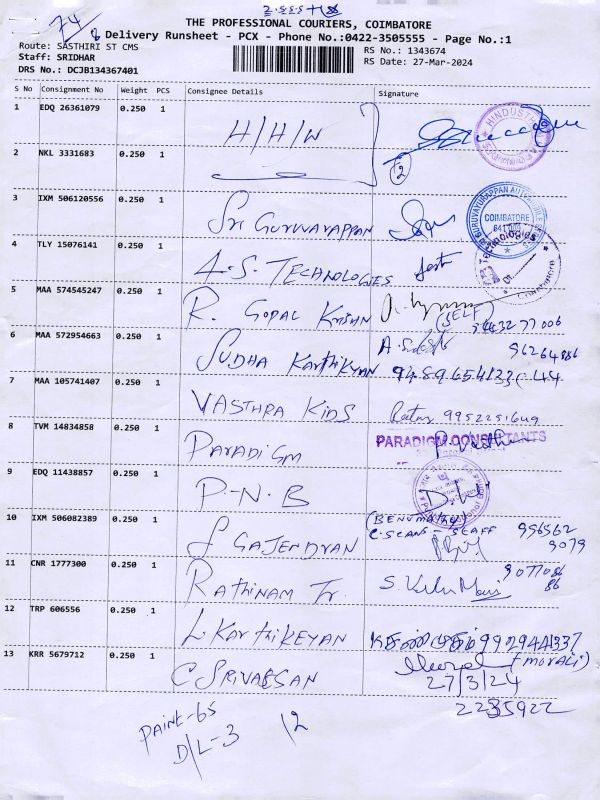 74
THE PROFESSIONAL COURIERS, COIMBATORE
Delivery Runsheet - PCX - Phone No.:0422-3505555 - Page No.:1
Route: SASTHIRI ST CMS
RS No.: 1343674
Staff: SRIDHAR
RS Date: 27-Mar-2024
DRS No.: DCJB134367401
S No Consignment No Weight PCS Consignee Details Signature
1 EDQ 26361079 0.250 1 H/H/W
2 NKL 3331683 0.250 1
3 IXM 506120556 0.250 1 Sri Guruvarappan
COIMBATORE
4 TLY 15076141 0.250 1 A.S. Technologies
5 MAA 574545247 0.250 1 R. Gopal Krishn (SELF)
6 MAA 572954663 0.250 1 Sudha Karthikyan
7 MAA 105741407 0.250 1 Vasthra Kids 9952251649
8 TVM 14834858 0.250 1 Paradigm
PARADIGM CONSULTANTS
9 EDQ 11438857 0.250 1 P.N.B
10 IXM 506082389 0.250 1 S Gajendran
C.SCANS - STAFF 996562
9079
11 CNR 1777300 0.250 1 Rathinam Tr.
12 TRP 606556 0.250 1 L. Karthikeyan
13 KRR 5679712 0.250 1 C Srivaesan (MURALI)
27/3/24
2235922
PAINT-65
D/L-3 12